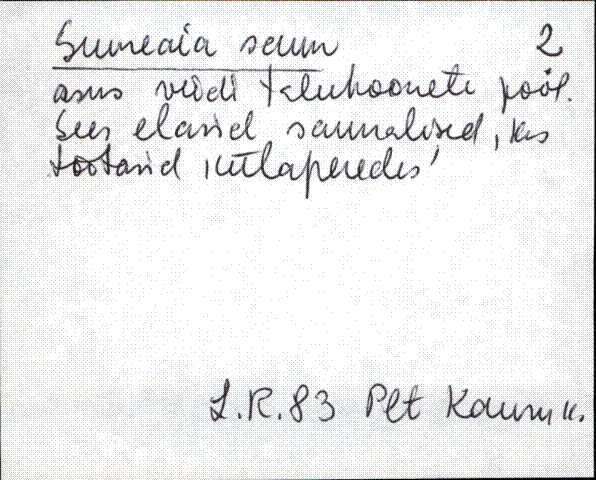 Sumeaia saun 2
asus veidi taluhoonete pool.
Sees elasid saunalised, kes
töötasid külaperedes'
L.R. 83 Plt Kaum k.